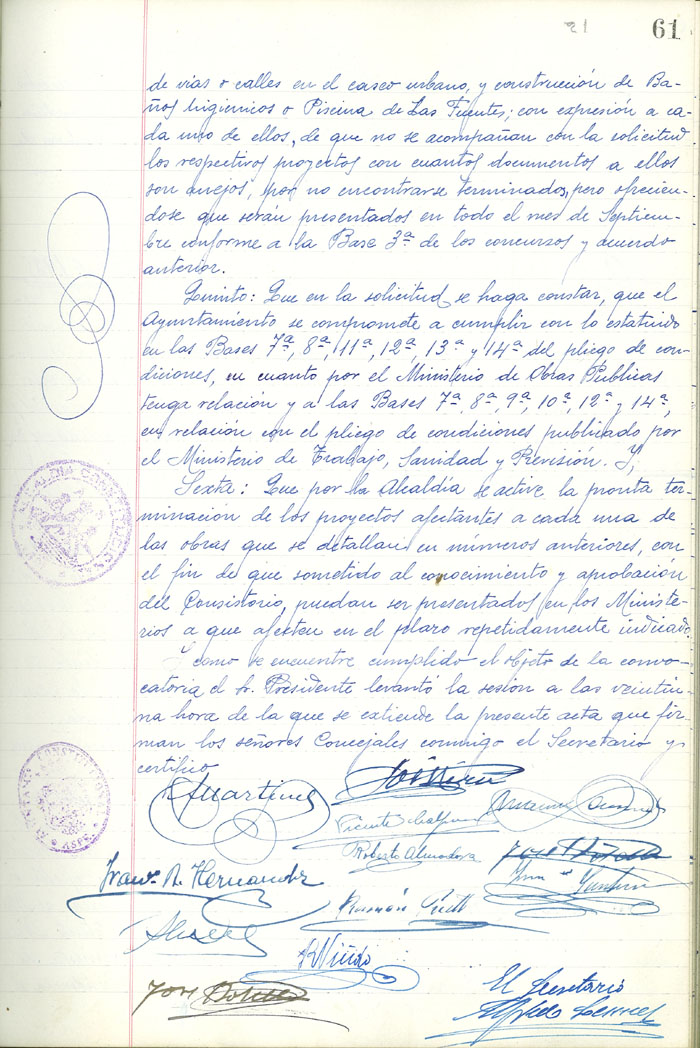 21 61
de vías o calles en el casco urbano, y construcción de Ba-
ños higiénicos o Piscina de Las Fuentes; con expresión a ca-
da uno de ellos, de que no se acompañan con la solicitud
los respectivos proyectos con cuantos documentos a ellos
son anejos, por no encontrarse terminados, pero ofrecien-
dose que serán presentados en todo el mes de Septiem-
bre conforme a la Base 3ª de los concursos y acuerdo
anterior.
Quinto: Que en la solicitud se haga constar, que el
Ayuntamiento se compromete a cumplir con lo estatuido
en las Bases 7ª, 8ª, 11ª, 12ª, 13ª y 14ª del pliego de con-
diciones, en cuanto por el Ministerio de Obras Públicas
tenga relación y a las Bases 7ª, 8ª, 9ª, 10ª, 12ª y 14ª,
en relación con el pliego de condiciones publicado por
el Ministerio de Trabajo, Sanidad y Previsión. Y,
Sexto: Que por la Alcaldía se active la pronta ter-
minación de los proyectos afectantes a cada una de
las obras que se detallan en números anteriores, con
el fin de que sometido al conocimiento y aprobación
del Consistorio, puedan ser presentados en los Ministe-
rios a que afecten en el plazo repetidamente indicado.
Y como se encuentre cumplido el objeto de la convo-
catoria el Sr. Presidente levantó la sesión a las veintiu-
na hora de la que se extiende la presente acta que fir-
man los señores Concejales conmigo el Secretario y
certifico
Martinez
Vicente
Roberto Almodova
José
Franco. A. Hernandez
Ramón
José
El Secretario
Alfredo